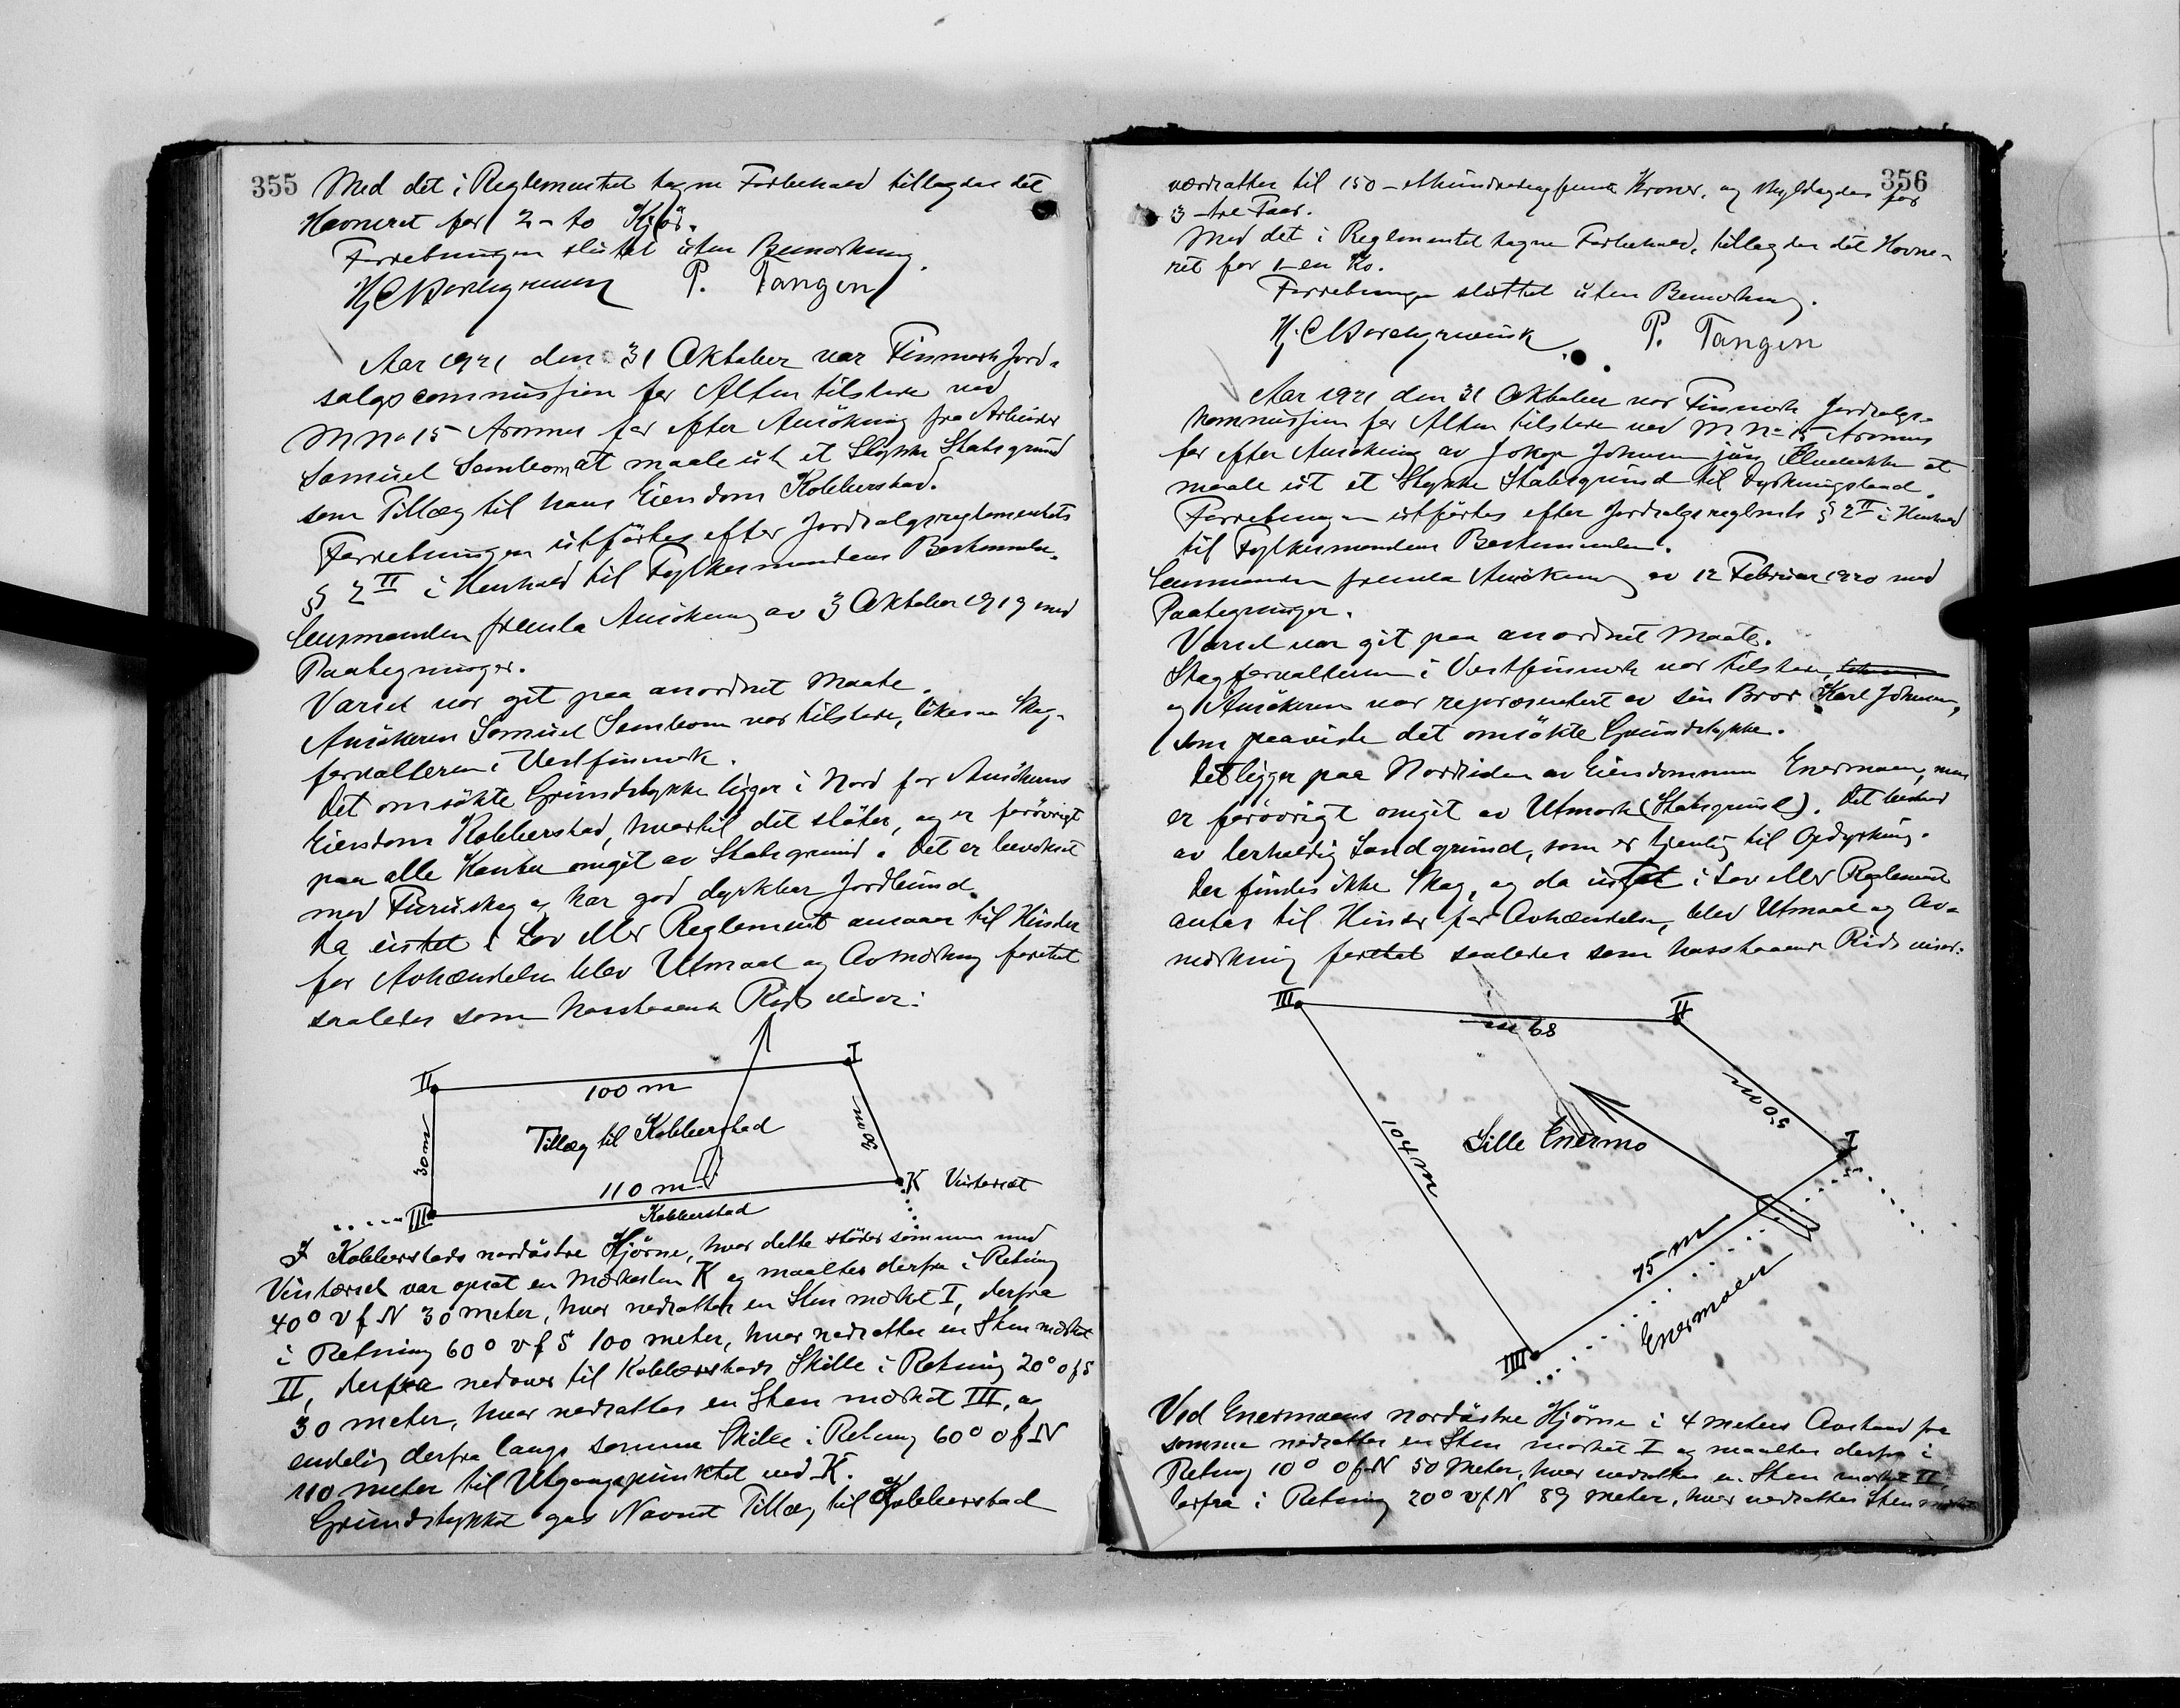 355
Med det i Reglementet tagne Forbehold tillagdes det
Havneret for 2 - to Kjør.
Forretningen sluttet uten Bemerkning.
P. Tangen
Aar 1921 den 31 Oktober var Finmark Jord-
salgscommission for Alten tilstede ved
M No 15 Aronnes for efter Ansökning fra Arbeider
Samuel Samleom at maale ut et Stykke Statsgrund
som Tillæg til hans Eiendom Kobberstad.
Forretningen utförtes efter Jordsalgsreglementets
§ 2 II i Henhold til Fylkesmandens Bestemmelse.
Lensmanden fremla Ansökning av 3 Oktober 1919 med
Paategninger.
Varsel var git paa anordnet Maate.
Ansökeren Samuel Samleom var tilstede, likesaa Skog-
forvalteren i Vestfinmark.
Det omsökte Grundstykke ligger i Nord for Ansökerens
Eiendom Kobberstad, hvortil det stöter, og er forövrigt
paa alle Kanter omgit av Statsgrund. Det er bevokset
med Furuskog og har god dyrkbar Jordbund.
Da intet i Lov eller Reglement ansaaes til Hinder
for Avhændelse blev Utmaal og Avmerkning foretat
saaledes som hosstaaende Rids viser:
II 100 m I
30 m Tillæg til Kobberstad 30 m
110 m K Vinterset
III Kobberstad
I Kobberstads nordöstre Hjörne, hvor dette stöder sammen med
Vinterset var opsat en Merkesten K og maaltes derfra i Retning
40° v f N 30 meter, hvor nedsattes en Sten merket I, derfra
i Retning 60° v f S 100 meter, hvor nedsattes en Sten merket
II, derfra nedover til Kobberstads Skille i Retning 20° o f S
30 meter, hvor nedsattes en Sten merket III, og
endelig derfra langs samme Skille i Retning 60° o f N
110 meter til Utgangspunktet ved K.
Grundstykket gas Navnet Tillæg til Kobberstad
356
værdsattes til 150 - ethundredeogfemti Kroner, og skyldlagdes for
3 - tre Øre.
Med det i Reglementet tagne Forbehold, tillagdes det Havne-
ret for 1 - en Ko.
Forretningen sluttet uten Bemerkning.
P. Tangen
Aar 1921 den 31 Oktober var Finmark Jordsalgs-
kommission for Alten tilstede ved M No 15 Aronnes
for efter Ansökning av Johan Johnsen jun, Elvebakken at
maale ut et Stykke Statsgrund til Dyrkningsland.
Forretningen utförtes efter Jordsalgsreglmts § 2 II i Henhold
til Fylkesmandens Bestemmelse.
Lensmanden fremla Ansökning av 12 Februar 1920 med
Paategninger.
Varsel var git paa anordnet Maate.
Skogforvalteren i Vestfinmark var tilstede,
og Ansökeren var repræsentert av sin Bror Karl Johnsen,
som paaviste det omsökte Grundstykke.
Det ligger paa Nordsiden av Eiendommen Enermoen, men
er forövrigt omgit av Utmark (Statsgrund). Det bestaar
av lerholdig Sandgrund, som er tjenlig til Opdyrking.
Der findes ikke Skog, og da intet i Lov eller Reglement
antas til Hinder for Avhændelse, blev Utmaal og Av-
merkning foretat saaledes som hosstaaende Rids viser:
III 89 m II
50 m
104 m Lille Enermo I
75 m
Enermoen
IIII
Ved Enermoens nordöstre Hjörne i 4 meters Avstand fra
samme nedsattes en Sten merket I og maaltes derfra i
Retning 10° o f N 50 Meter, hvor nedsattes en Sten merket II,
derfra i Retning 20° v f N 89 meter, hvor nedsattes Sten merket